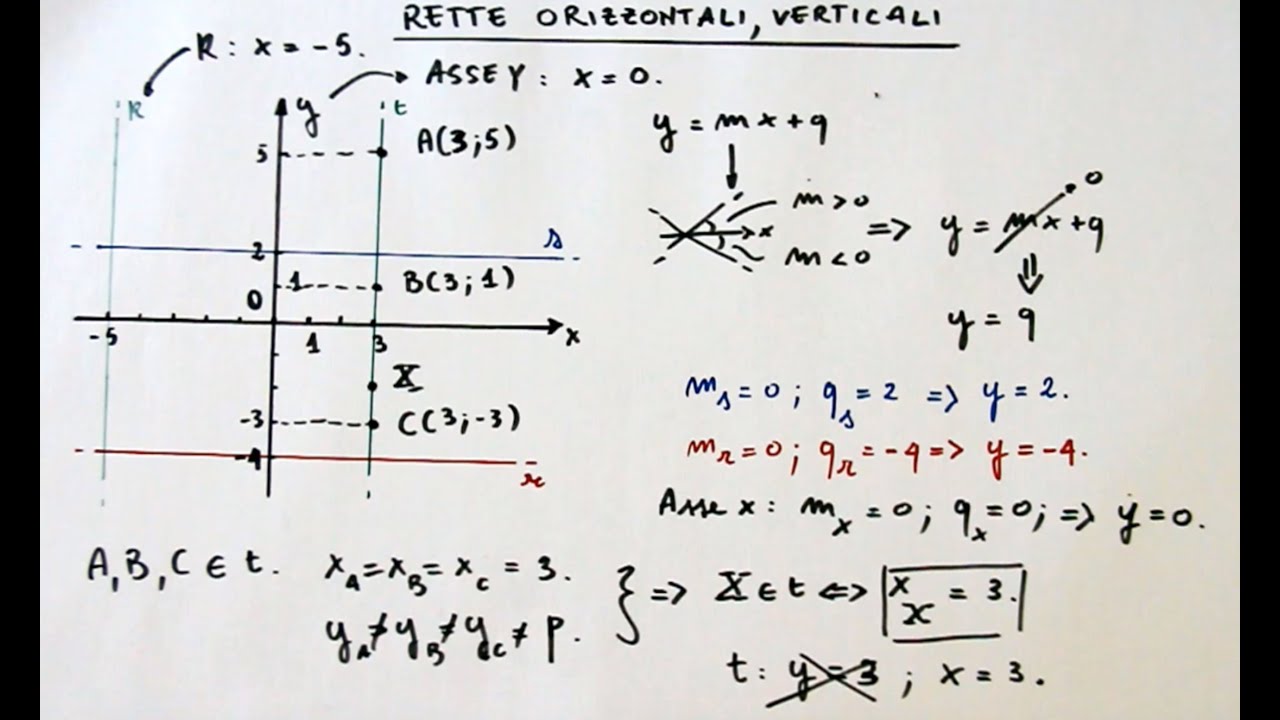 RETTE ORIZZONTALI, VERTICALI
R: x = -5.
ASSE Y: x = 0.
R
y
t
5
A(3;5)
s
2
1
B(3;1)
0
-5
1
3
x
X
-3
C(3;-3)
-4
r
y = mx+q
m>0
x
m<0
=> y = mx+q
0
⇓
y = q
m_s = 0; q_s = 2 => y = 2.
m_r = 0; q_r = -4 => y = -4.
Asse x: m_x = 0; q_x = 0; => y = 0.
A, B, C ∈ t. x_A = x_B = x_C = 3.
y_A ≠ y_B ≠ y_C ≠ p.
} => X ∈ t <=> x_X = 3.
t: y = 3; x = 3.